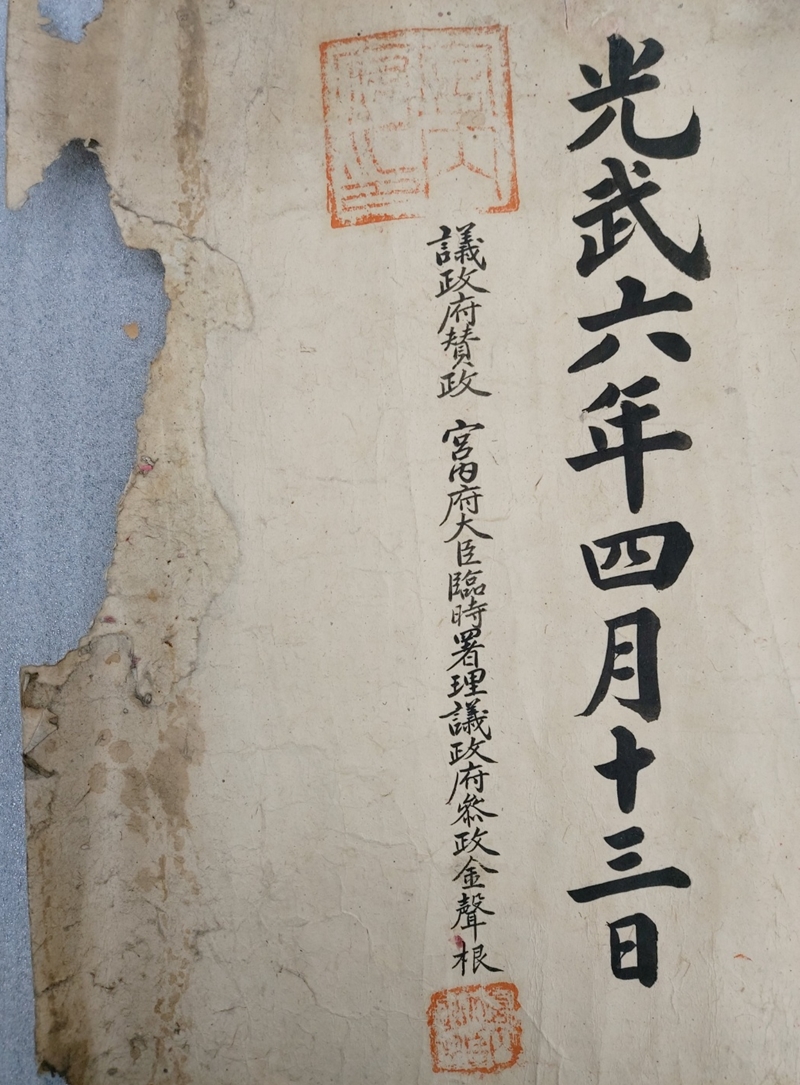 光武六年四月十三日
議政府賛政 宮內府大臣臨時署理議政府叅政金聲根